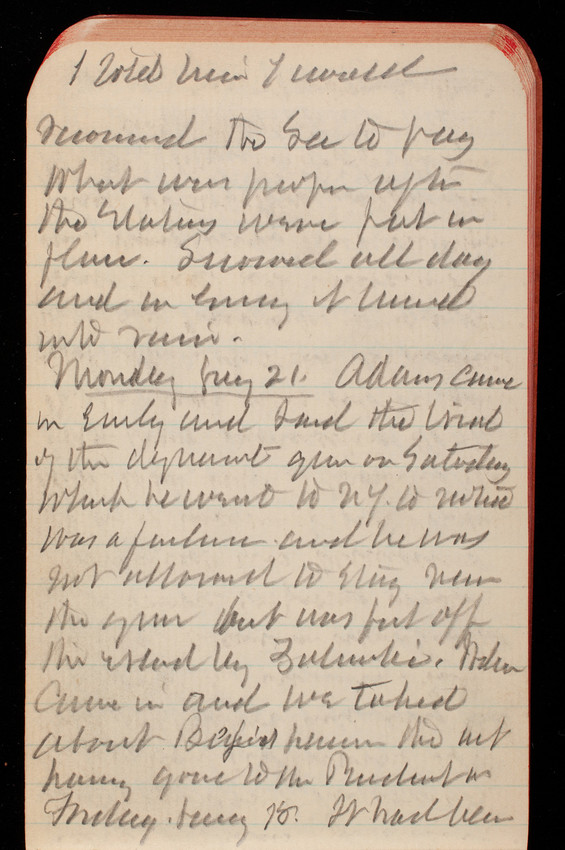 I told him I would
recomend the Sec to pay
what was proper after
the Stations were put in
place. Snowed all day
and in evening it turned
into rain.
Monday Jany 21. Adams came
in Early and said the trial
of the dynamite gun on Saturday
which he went to NY. to
was a failure and he was
not allowed to stay near
the gun but was put off
the island by Zalinski.
came in and we talked
about pension the act
having gone to the President on
Friday. Jany 18. It had been